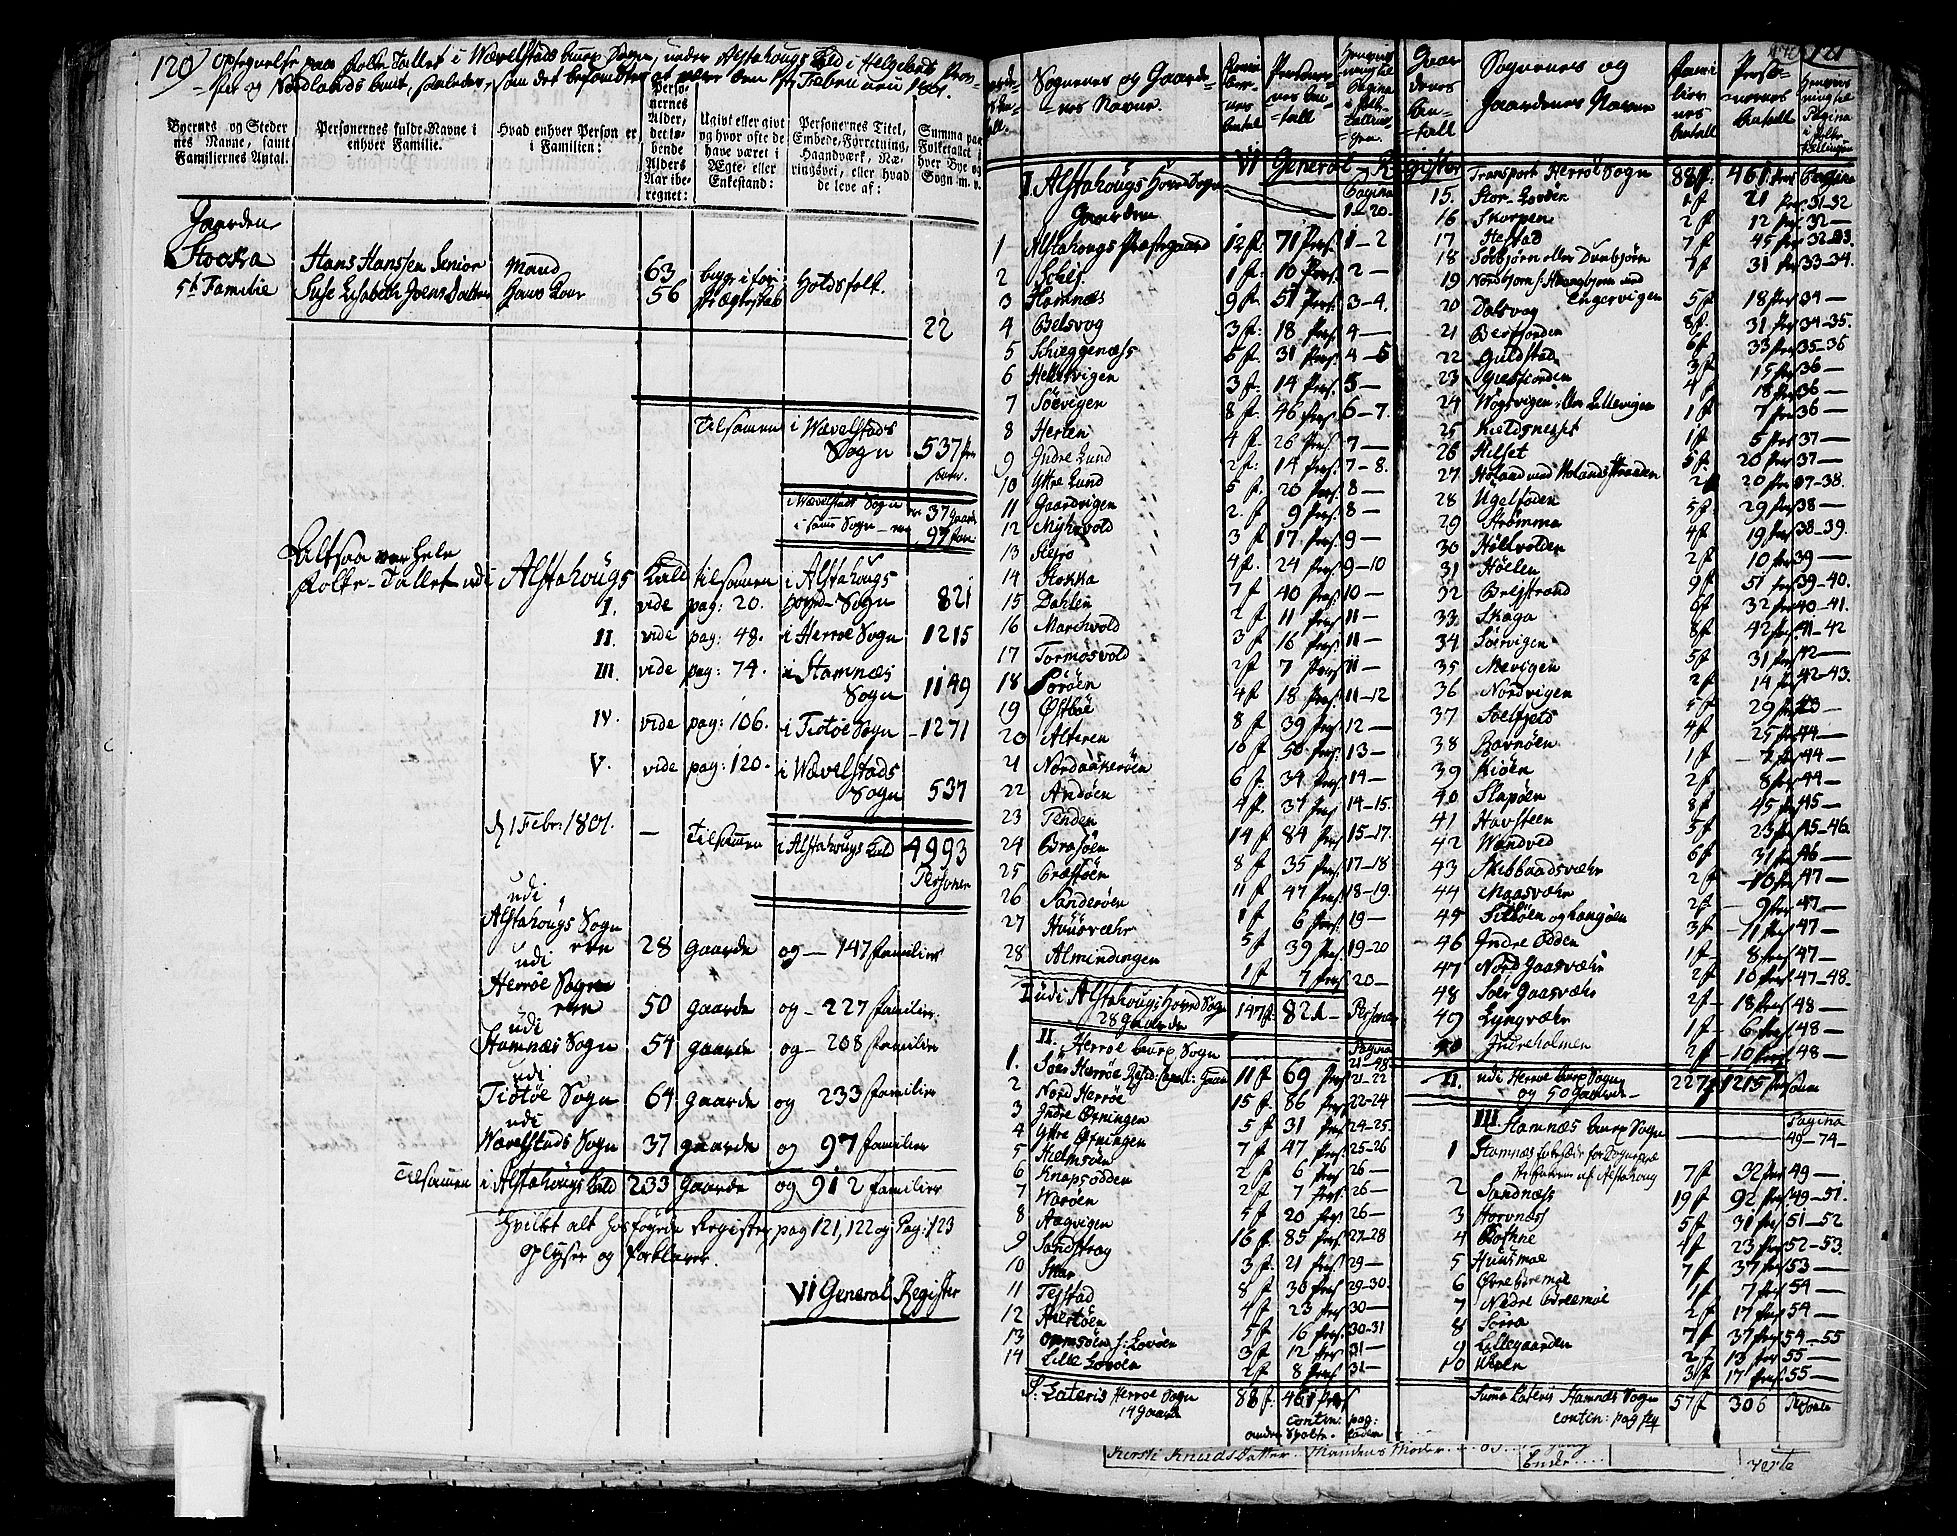 120
Optegnelse paa Folke Tallet i Wævelstads Annex Sogn, under Alstahougs Kald i Helgelands Prov-
-stie og Nordlands Amt, saaledes, som det befandtes at være den 1ste Februarii 1801.
Byernes og Steder
nes Navne, samt
Familiernes Antal.
Personernes fulde Navne i
enhver Familie.
Hvad enhver Person er
i Familien:
Perso-
nernes
Alder,
det lø-
bende
Alders
Aar ibe-
regnet:
Ugivt eller givt
og hvor ofte de
have været i
Ægte- eller
Enkestand:
Personernes Titel,
Embede, Forretning,
Haandværk, Næ-
ringsvei, eller hvad
de leve af:
Summa paa
Folketallet i
hver Bye og
Sogn m. v.
Gaarden
Stocka
5t Familie
Hans Hanssen Senior Mand 63
Suse Lisabeth Joens Datter Hans Kone 56
begge i første
Ægteskab
Holdsfolk.
22
Tilsamen i Wævelstads
Sogn 537 Per
soner.
i Wævelstads Sogn er 37 Gaarde
i samme Sogn ere 97 Fam
Altsaa er hele
Folke-Tallet udi Alstahougs Kald tilsamen i Alstahougs
I. vide pag: 20. Hoved-Sogn 821
II. vide pag: 48. i Herrøe Sogn 1215
III. vide pag: 74. i Stamnæs
Sogn 1149
IV. vide pag: 106. i Tiøtøe Sogn 1271
V. vide pag: 120. i Wævelstads
Sogn 537
d 1 Febr: 1801. — Tilsamen i Alstahougs Kald 4993
Personer
udi
Alstahougs Sogn
ere 28 gaarde og — 147 familier
udi
Herrøe Sogn
ere 50 gaarde og — 227 familier
udi
Stamnæs Sogn 54 gaarde og — 208 familier
udi
Tiøtøe Sogn 64 gaarde og 233 familier
udi
Wævelstads Sogn 37 gaarde og 97 familier
Tilsamen i Alstahougs Kald 233 gaarde og 912 familier
Hvilket alt hosføyede Register pag 121, 122 og Pag: 123
oplyser og forklarer.
VI General Register
121
Sognenes og Gaarde-
nes Navne.
Sognenes og
Gaardenes Navne
VI General-Register
I. Alstahougs Hoved Sogn Pagina
Gaarden 1-20.
1 Alstahougs Præstegaard 12 f. 71 Pers. 1-2
2 Schei 1 f. 10 Pers. 2 —
3 Hamnæs 9 f. 51 Pers. 3-4.
4 Belsvog 3 f. 18 Pers. 4 —
5 Schieggenæss 5 f. 31 Pers. 4-5
6 Hellsvigen 3 f. 14 Pers. 5 —
7 Søevigen 8 f. 46 Pers. 6-7.
8 Herten 4 f. 26 Pers. 7 —
9 Indre Lund 2 f. 14 Pers. 7-8.
10 Yttre Lund 5 f. 20 Pers. 8 —
11 Gaardvigen 2 f. 9 Pers. 8 —
12 Myhrvold 3 f. 17 Pers. 9 —
13 Sletto 4 f. 24 Pers. 9-10
14 Stokka 7 f 40 Pers. 10 —
15 Dahlen 2 f 11 Pers. 11 —
16 Marchvold 3 f 16 Pers. 11 —
17 Tormosvold 2 f 7 Pers. 11 —
18 Sørøen 4 f 18 Pers. 11-12
19 Østbøe 8 f 39 Pers. 12 —
20 Alteren 10 f 50 Pers. 13 —
21 Nordaakerøen 6 f 34 Pers. 14 —
22 Andøen 4 f 37 Pers 14-15.
23 Tenden 14 f 84 Pers 15-17.
24 Brasøen 8 f 35 Pers. 17-18
25 Græsøen 11 f 47 Pers. 18-19.
26 Sanderøen 1 f 6 Pers. 19 —
27 Huusværhr 5 f 39 Pers. 19-20
28 Almindingen 1 f 7 Pers 20 —
I. udi Alstahougs Hoved Sogn 147 f 821 — Personer
28 Gaarde
II. Herrøe Annex Sogn Pagina
21-48
1. Søer Herrøe Resid: Capell: Gaard 11 f 69 Pers 21-22
2 Nord Herrøe 15 f. 86 Pers. 22-24
3 Indre Øxningen 5 f 31 Pers 24-25.
4 Yttre Øxningen 7 f 47 Pers. 25-26
5 Hielmsøen 2 f 6 Pers. 26 —
6 Knapsodden 2 f 7 Pers. 26 —
7 Warøen 5 f 20 Pers. 26 —
8 Aagvigen 16 f 85 Pers. 27-28
9 Sandstrag 3 f 21 Pers. 29 —
10 Skar 8 f 30 Pers. 29-30.
11 Testad 4 f 23 Pers. 30 —
12 Hiertøen 5 f 16 Pers. 30-31
13 Ormsøen f: Lovøen 3 f 12 Pers 31 —
14 Lille Lovøen 2 f 8 Pers. 31 —
S. Lateris Herrøe Sogn 88 f. 461 Pers
14 Gaarde contin: pag:
Transport Herrøe Sogn 88 f. 461 Pers Pagina
15. Stor-Lovøen 1 f 21 Pers 31-32
16 Skorpen 2 f 12 Pers 32 —
17 Hestad 7 f 45 Pers 32-33.
18 Søebjørn eller Dunbjørn 7 f 31 Pers 33-34.
19 Nordbjørn f: Haangbjørn med
Engervigen 5 f 18 Pers 34 —
20 Dalsvog 8 f. 31 Pers 34-35.
21 Berfiorden 6 f 33 Pers 35-36
22 Guldstad 3 f 15 Pers 36 —
23 Græsfiorden 4 f 18 Pers 36 —
24 Wogsvigen, Lillevigen 1 f 7 Pers 36
25 Kieldsneset 1 f 5 Pers 37 —
26 Hilset 5 f. 20 Pers 37 —
27 Høland med Hølandstranden 2 20 Pers 37-38.
28 Ugelfoden 5 f 29 Pers 38 —
29 Strømma 4 f 19 Pers 38-39.
30 Hølkvolden 2 f 10 Pers 39 —
31 Høelen 9 f 51 Pers 39-40.
32 Brejstrand 6 f 32 Pers 40-41.
33 Skaga 8 f 42 Pers 41-42
34 Søervigen 5 f 31 Pers 42 —
35 Mevigen 2 f 14 Pers 42-43.
36 Nordvigen 5 f 29 Pers 43 —
37 Soelfjeld 4 f 25 Pers 44 —
38 Bavnøen 1 f — 2 Pers 44 —
39 Kiøen 2 f 8 Pers 44 —
40 Slapøen 8 f 45 Pers 45 —
41 Havsteen 5 f 23 Pers 45-46.
42 Wandved 6 f 31 Pers 46 —
43 Skibbaadsværhr 2 f — 10 Pers 47 —
44 Maasværhr 2 f — 9 Pers 47 —
45 Sildøen og Langøen 3 f — 11 Pers 47 —
46 Indre Odden 1 f — 8 Pers 47 —
47 Nord Gaasværhr 2 f 10 Pers 47-48.
48 Søer Gaasværhr 2 f — 18 Pers 48 —
49 Lyngværhr 1 f — 6 Pers 48 —
50 Indreholmen 2 f — 10 Pers 48 —
II. udi Herrøe Annex Sogn 227 f 1215 Personer
og 50 Gaarde —
III. Stamnæs Annex Sogn Pagina
49-74 —
1 Stamnæs
af Alstahoug 7 f 32 Pers 49 —
2 Sandnæss 19 f 92 Pers 49-51.
3 Horvnæss 5 f 31 Pers 51-52
4 Bothne 4 f 23 Pers 52-53.
5 Huusmoe 7 f 37 Pers 53 —
6 Øvre Aremoe 1 f 7 Pers 54 —
7 Nedre Aremoe 2 f 17 Pers 54 —
8 Sørra 7 f 37 Pers 54-55
9 Lillegaarden 2 f 13 Pers 55 —
10 3 f 17 Pers 55 —
Summa Lateris Stamnæs Sogn 57 f 306 Personer
contin: pag
Kirsti Knuds Datter Mandens Moder
verte